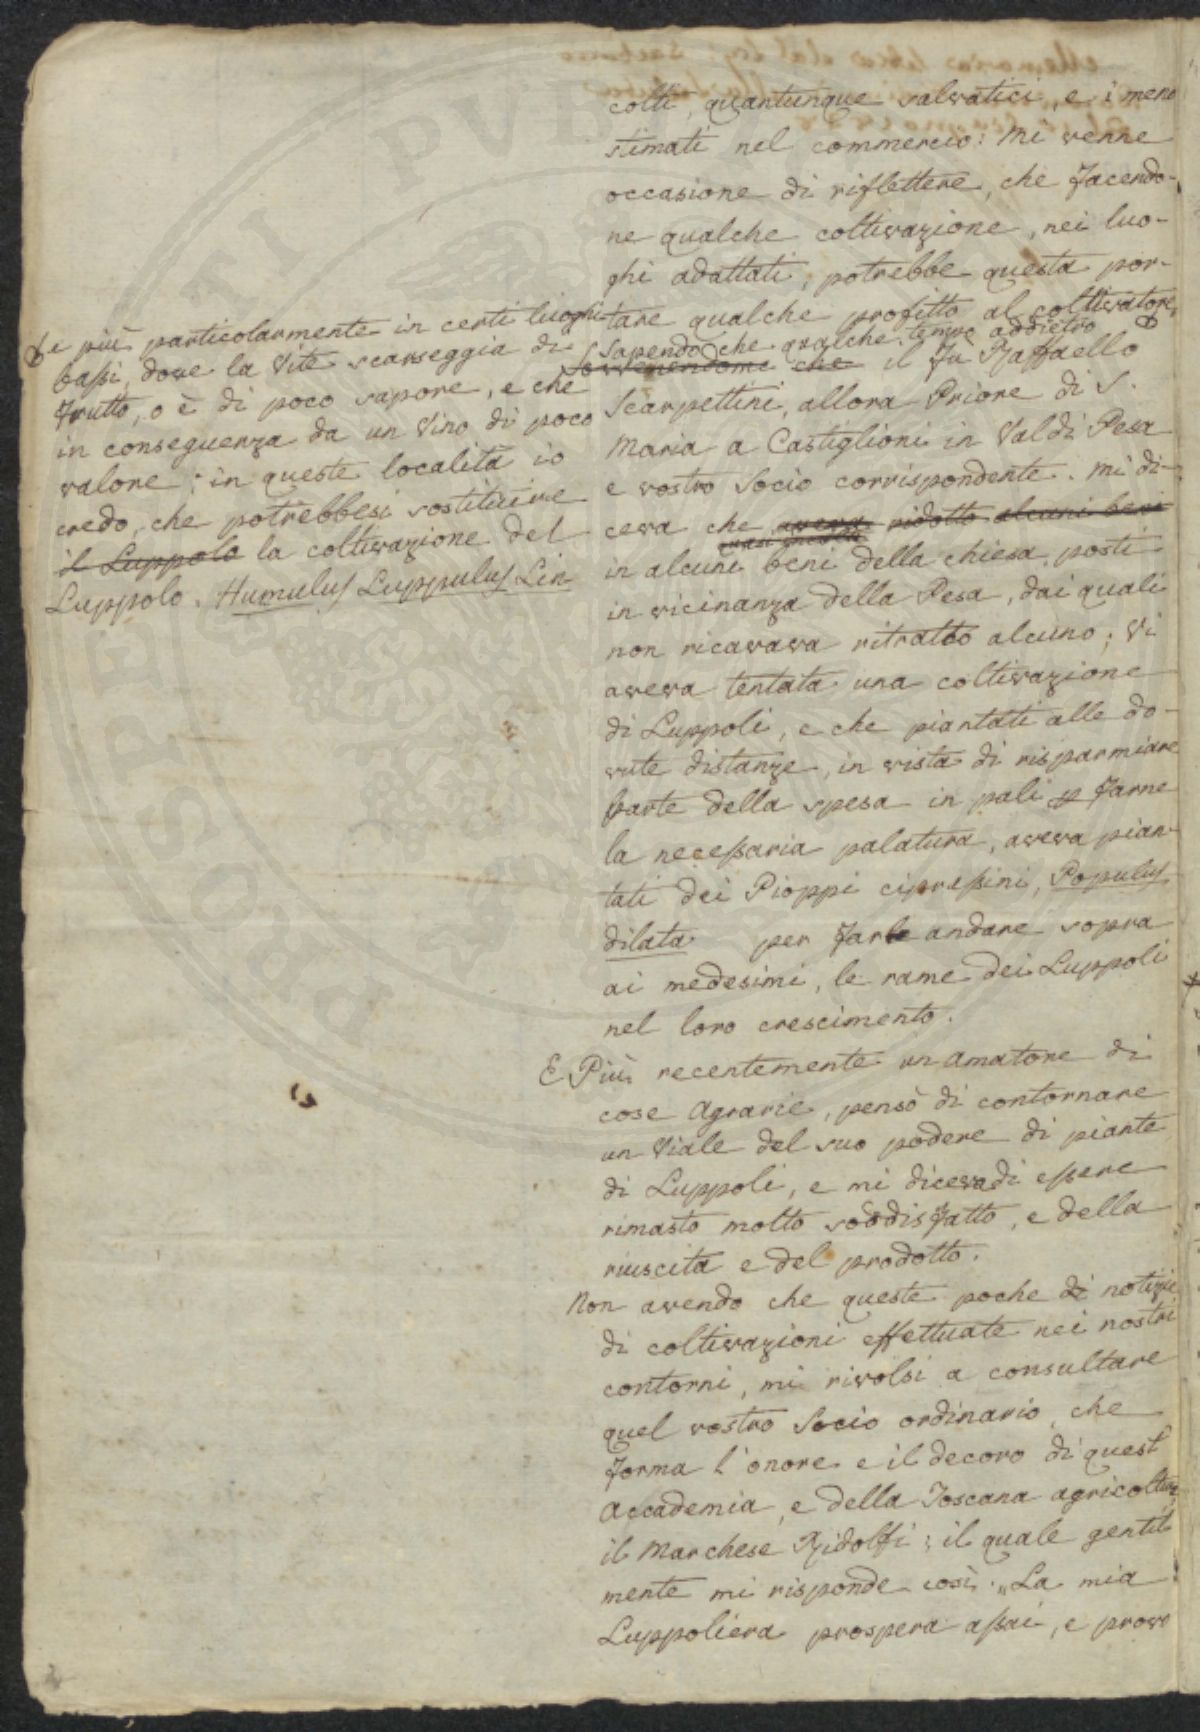 colti, quantunque salvatici, e i meno
stimati nel commercio: Mi venne
occasione di riflettere, che facendo-
ne qualche coltivazione, nei luo-
ghi adattati, potrebbe questa por-
tare qualche profitto al coltivatore,
sapendo che qualche tempo addietro
sovvenendomi che il fu Raffaello
Scarpettini, allora Priore di S.
Maria a Castiglioni in Val di Pesa
e vostro Socio corrispondente. mi di-
ceva che aveva ridotto alcuni beni
in alcuni beni della chiesa, posti
in vicinanza della Pesa, dai quali
non ricavava ritratto alcuno; vi
aveva tentata una coltivazione
di Luppoli, e che piantati alle do-
vute distanze, in vista di risparmiare
parte della spesa in pali p farne
la neceßaria palatura, aveva pian-
tati dei Pioppi cipreßini, Populus
dilata per farle andare sopra
ai medesimi, le rame dei Luppoli
nel loro crescimento.
E Più recentemente un amatore di
cose Agrarie, pensò di contornare
un Viale del suo podere di piante
di Luppoli, e mi diceva di eßere
rimasto molto soddisfatto, e della
riuscita e del prodotto.
Non avendo che queste poche di notizie
di coltivazioni effettuate nei nostri
contorni, mi rivolsi a consultare
quel vostro Socio ordinario, che
forma l'onore e il decoro di quest
Accademia, e della Toscana agricoltura
il Marchese Ridolfi; il quale gentil
mente mi risponde così. „La mia
Luppoliera prospera aßai, e prove
e più particolarmente in certi luoghi
baßi, dove la Vite scarseggia di
frutto, o è di poco sapore, e che
in conseguenza da un Vino di poco
valore: in queste località io
credo, che potrebbesi sostituire
il Luppolo la coltivazione del
Luppolo. Humulus Luppulus Lin